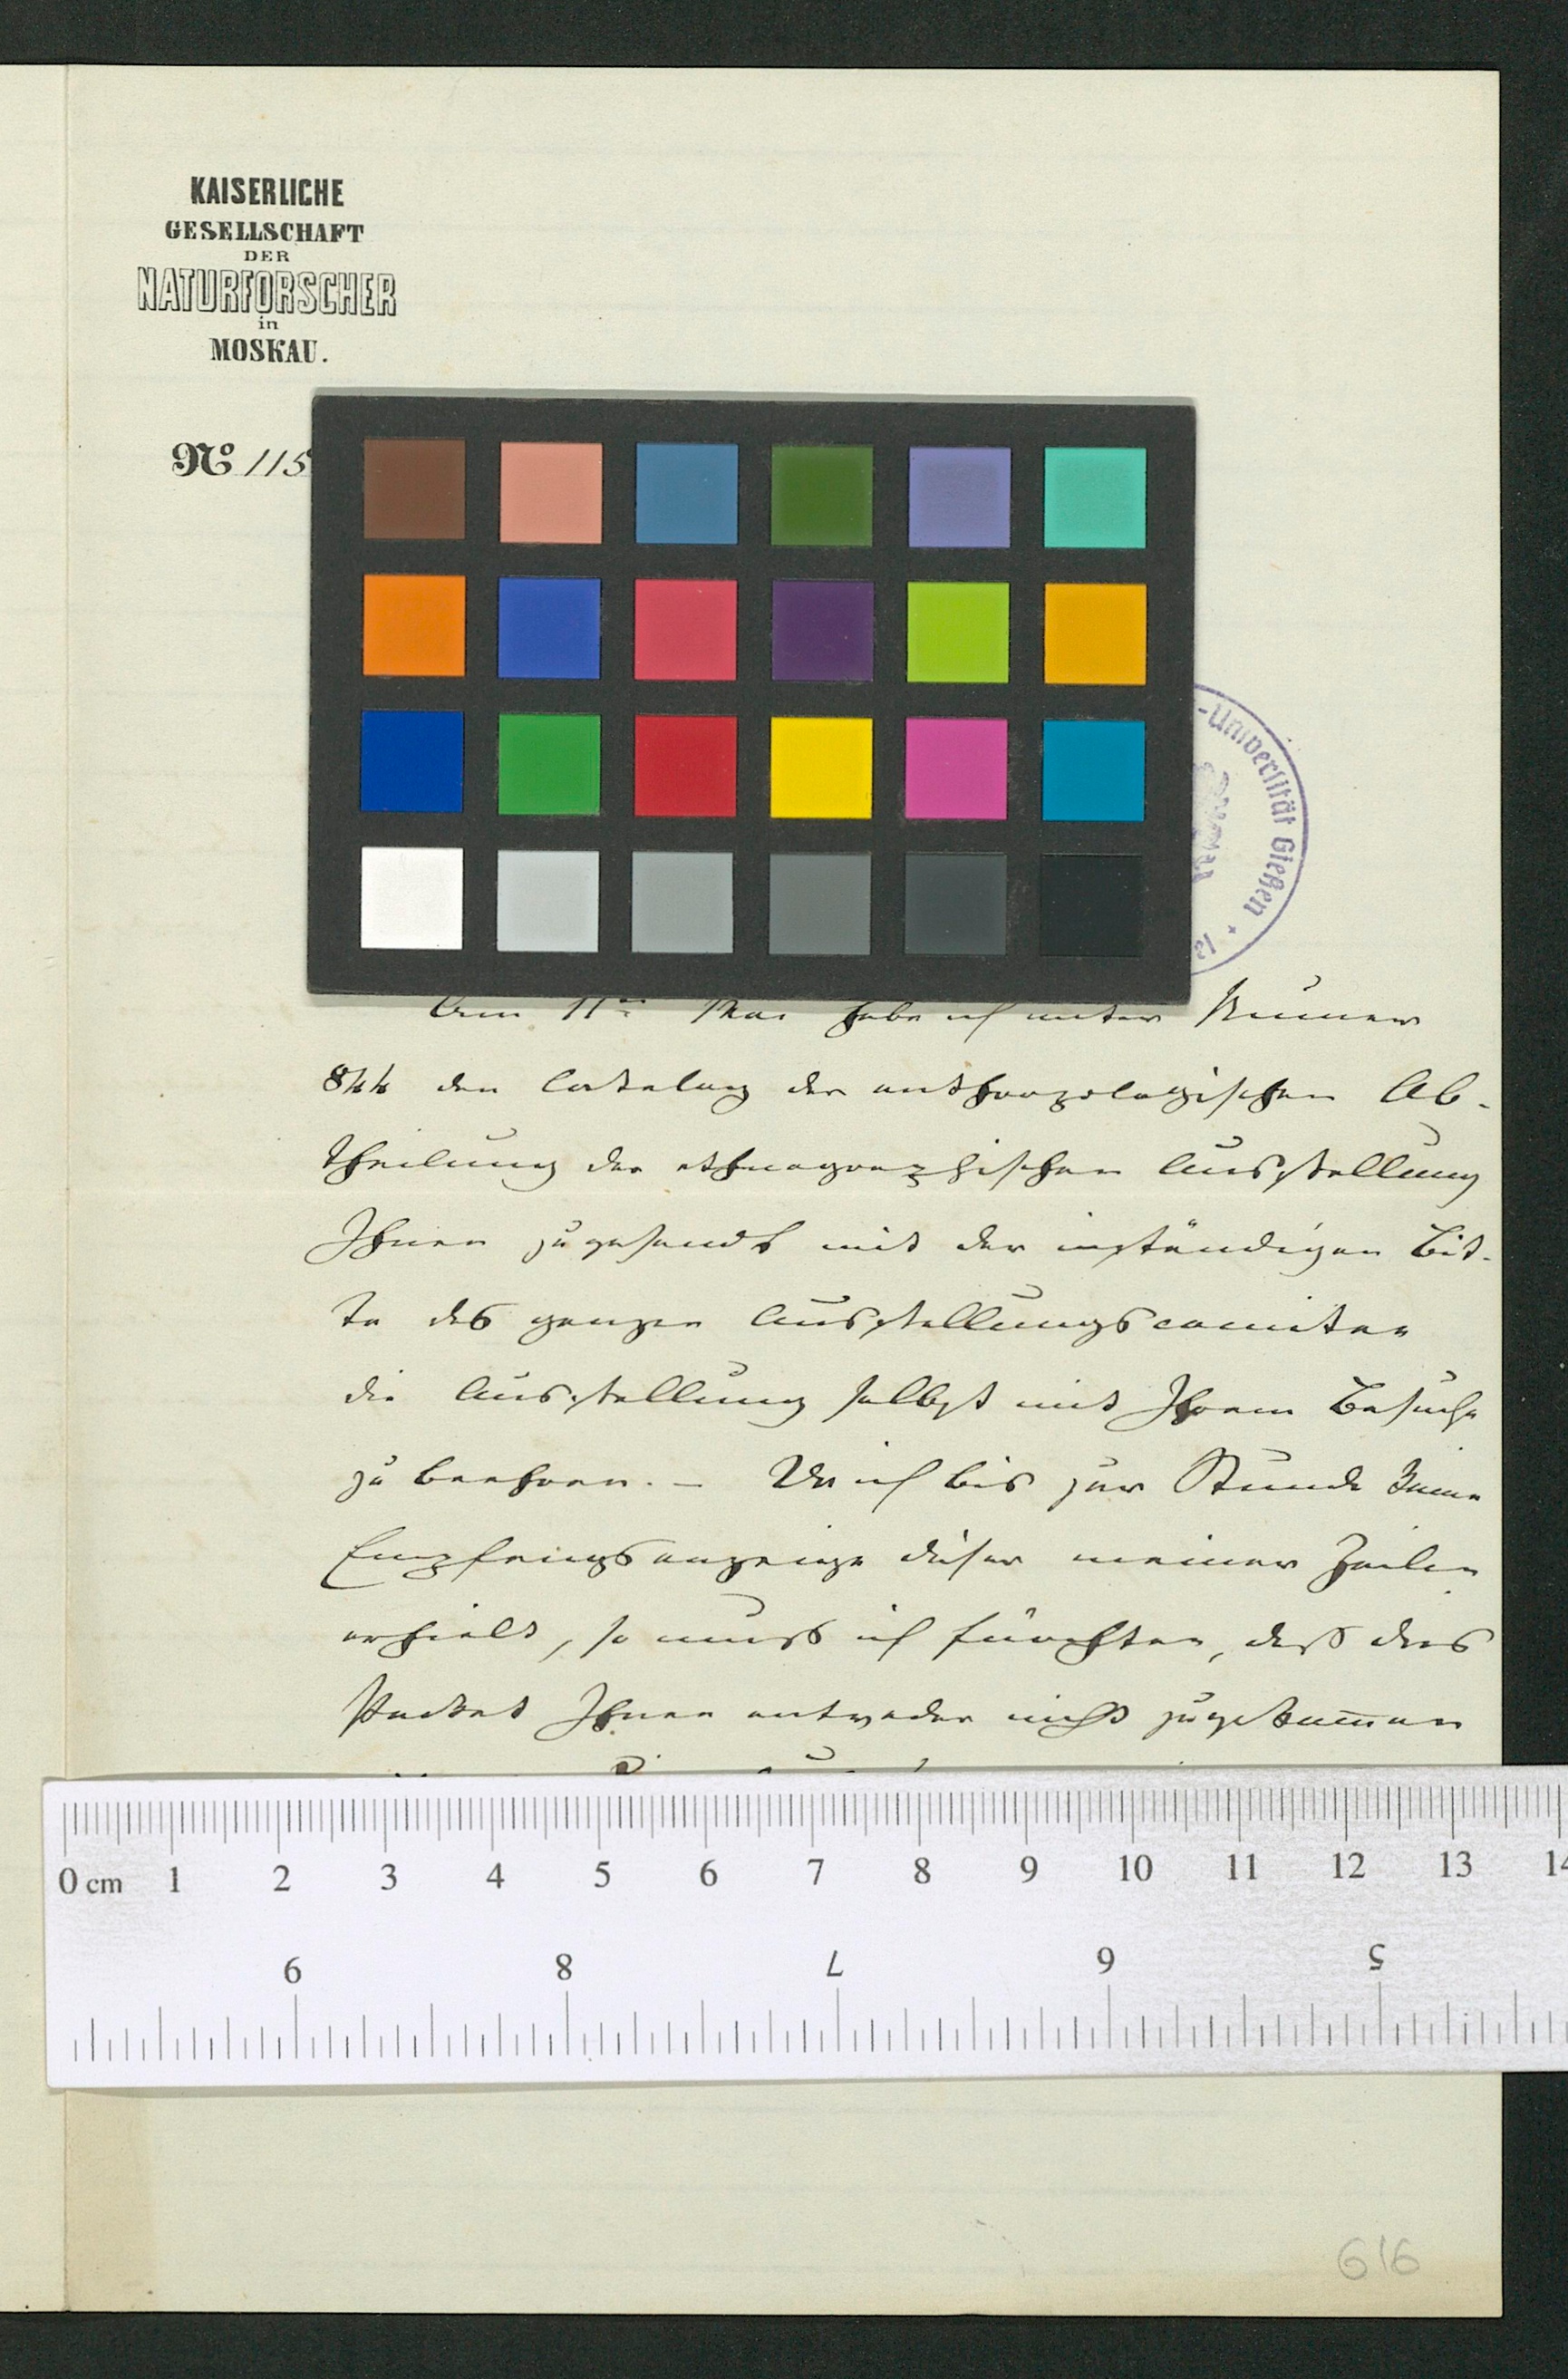 KAISERLICHE
GESELLSCHAFT
DER
NATURFORSCHER
in
MOSKAU.
No 115
-Universität Gießen
Am 11ten Mai habe ich unter Numer
844 den Catalog der anthropologischen Ab-
theilung der ethnographischen Ausstellung
Ihnen zugesandt mit der inständigen Bit-
te des ganzen Ausstellungscomites
die Ausstellung selbst mit Ihrem Besuche
zu beehren. – Da ich bis zur Stunde keine
Empfangsanzeige dieser meiner Zeilen
erhielt, so muss ich fürchten, daß dies
Packet Ihnen entweder nicht zugekom̅en
0 cm 1 2 3 4 5 6 7 8 9 10 11 12 13 14
9 8 7 6 5
616